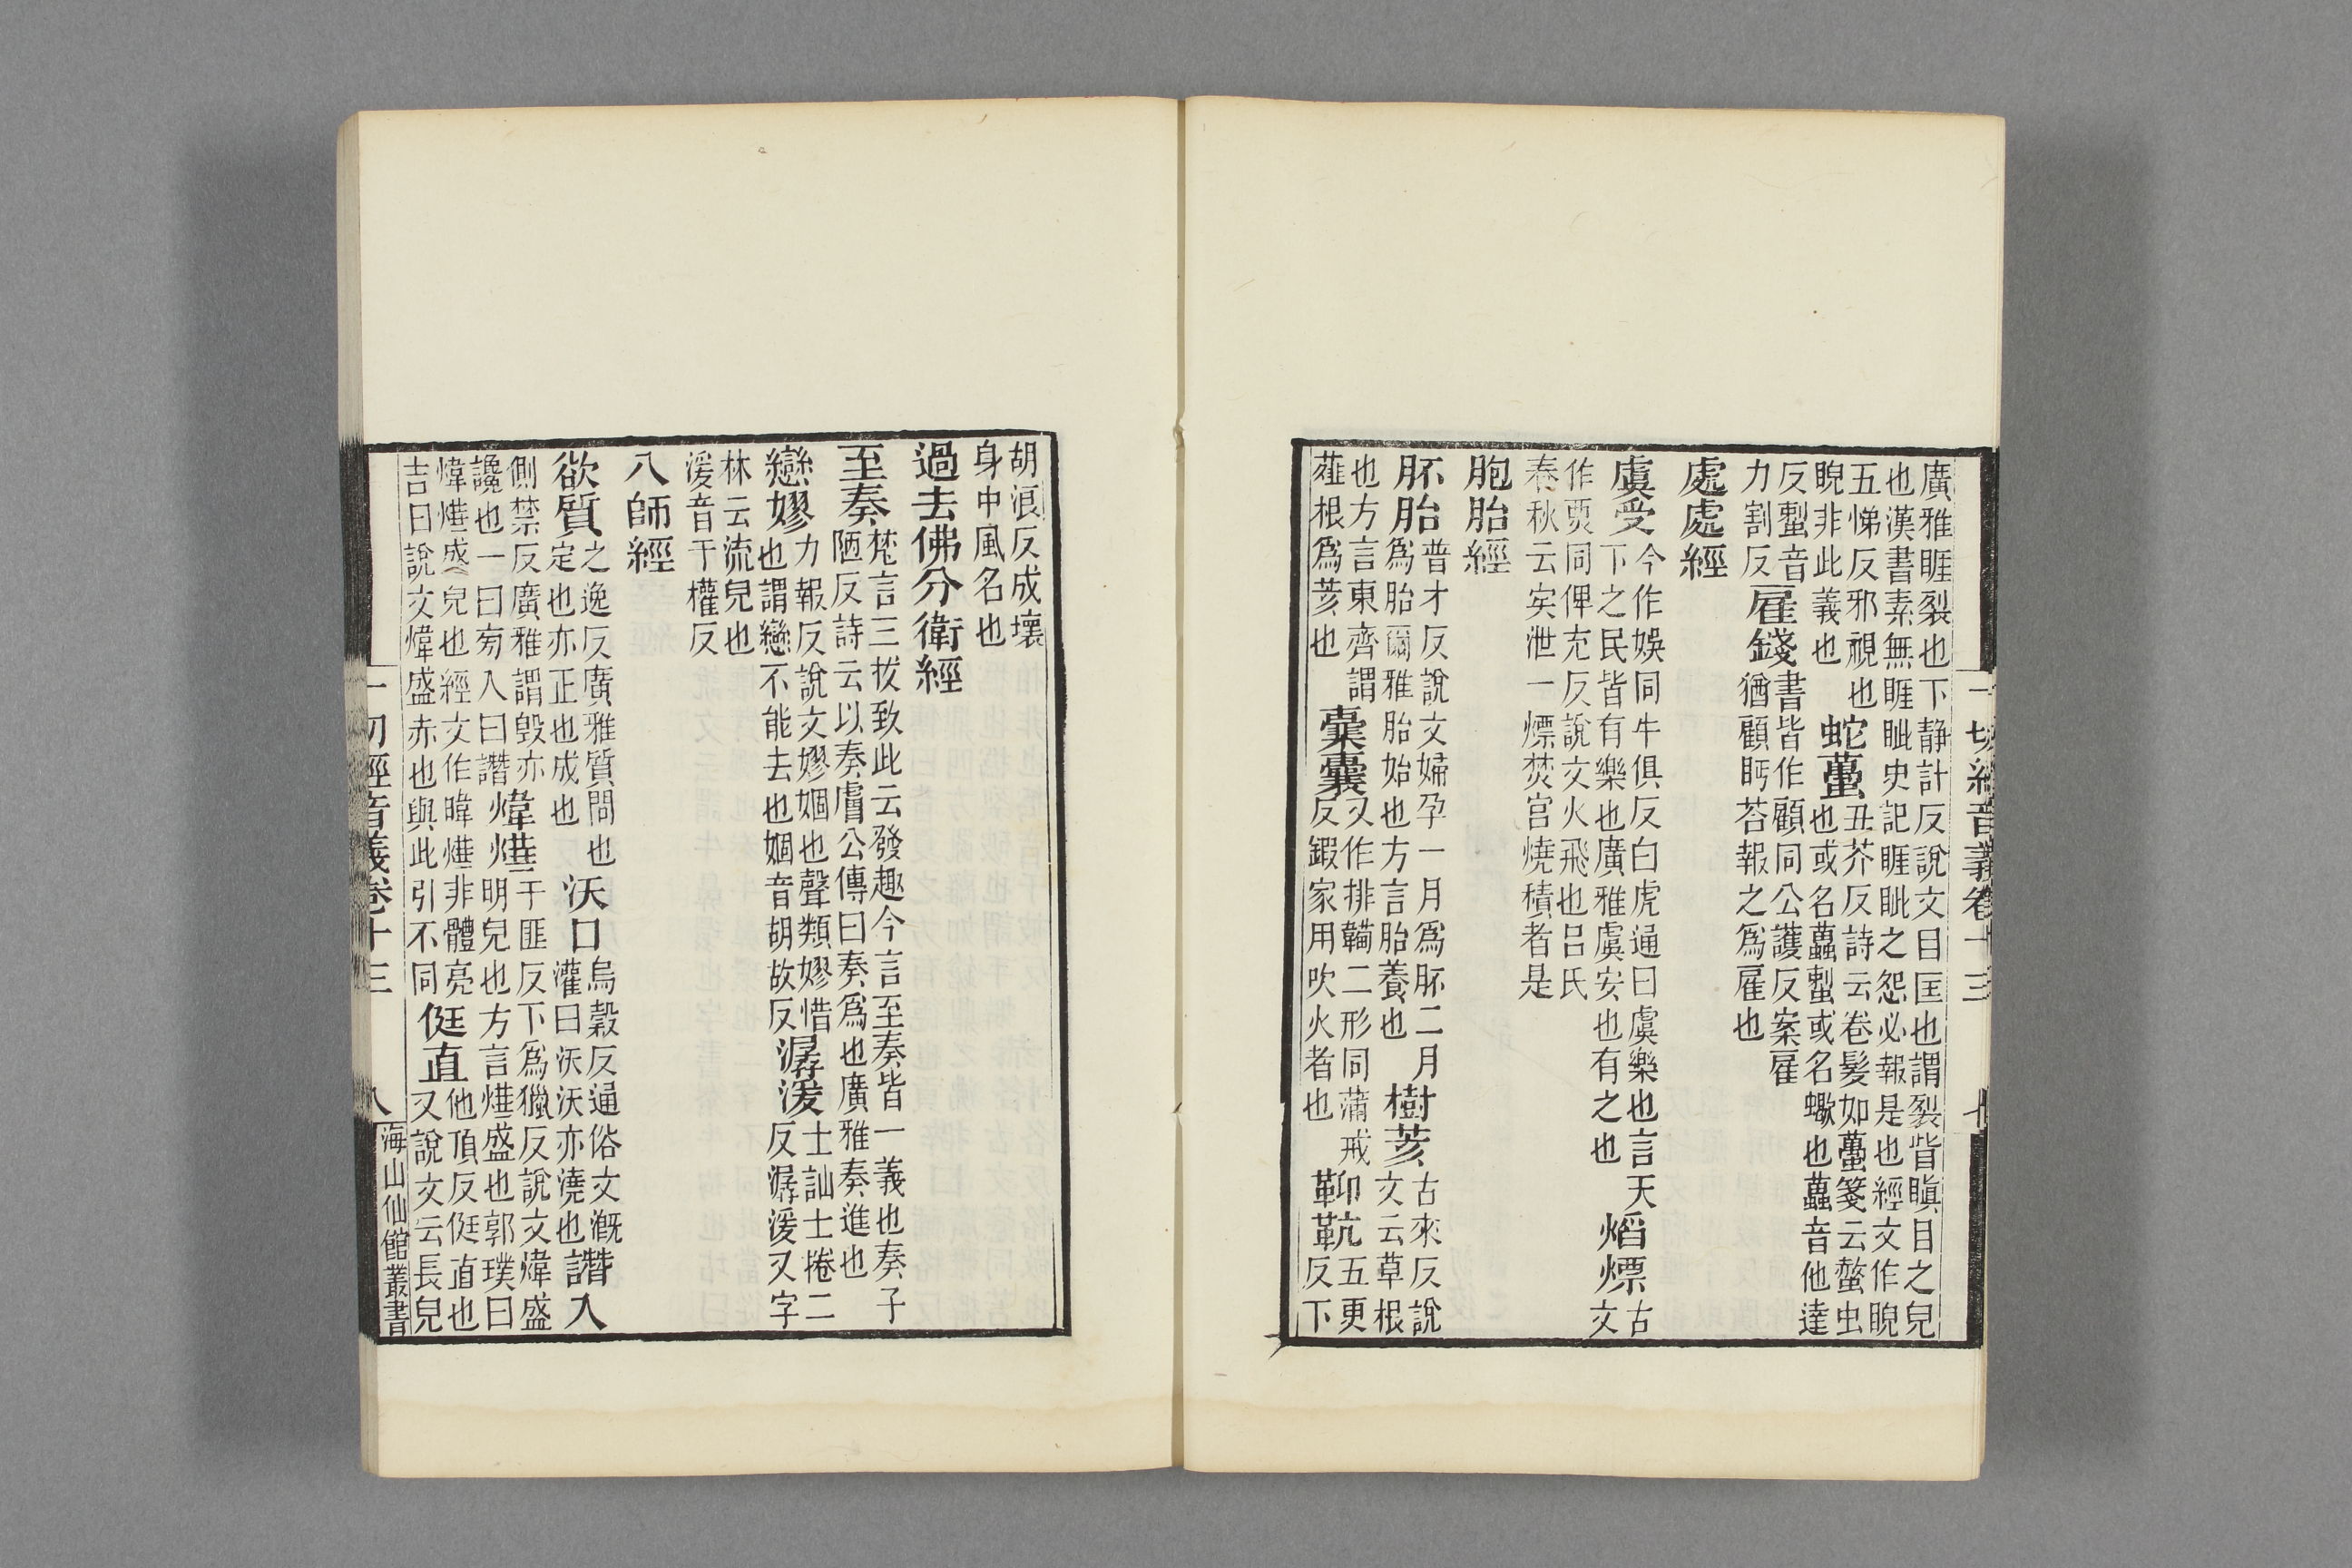 廣雅睚裂也下静計反說文目匡也謂裂眥瞋目之皃
也漢書素無睚眦史記睚眦之怨必報是也經文作睨
五悌反邪視也
睨非此義也
蛇蠆
丑芥反詩云卷髮如蠆箋云螫虫
也或名蠚蜇或名蠍也蠚音他達
反蜇音
力割反
雇錢
書皆作顧同公護反案雇
猶顧眄荅報之爲雇也
處處經
虞受
今作娛同牛俱反白虎通曰虞樂也言天
下之民皆有樂也廣雅虞安也有之也
熖熛
古
文
作㷠同俾充反說文火飛也呂氏
春秋云突泄一熛焚宫燒積者是
胞胎經
胚胎
普才反說文婦孕一月爲胚二月
爲胎爾雅胎始也方言胎養也
樹荄
古來反說
文云草根
也方言東齊謂
薤根爲荄也
橐囊
又作排韛二形同蒲戒
反鍛家用吹火者也
五更
反下
一切經音義卷十三
胡浪反成壞
身中風名也
過去佛分衛經
至奏
梵言三拔致此云發趣今言至奏皆一義也奏子
陋反詩云以奏膚公傳曰奏爲也廣雅奏進也
戀嫪
力報反說文嫪婟也聲類嫪惜
也謂戀不能去也婟音胡故反
潺湲
士訕士捲二
反潺湲又字
林云流皃也
湲音干權反
八師經
欲質
之逸反廣雅質問也
定也亦正也成也
沃口
烏穀反通俗文漑
灌曰沃沃亦澆也
譖入
側禁反廣雅謂毀亦
讒也一曰旁入曰譖
煒燁
于匪反下爲獵反說文煒盛
明皃也方言燁盛也郭璞曰
煒燁盛皃也經文作暐燁非體亮
吉曰說文煒盛赤也與此引不同
侹直
他頂反侹直也
又說文云長皃
一切經音義卷十三
八
海山仙館叢書